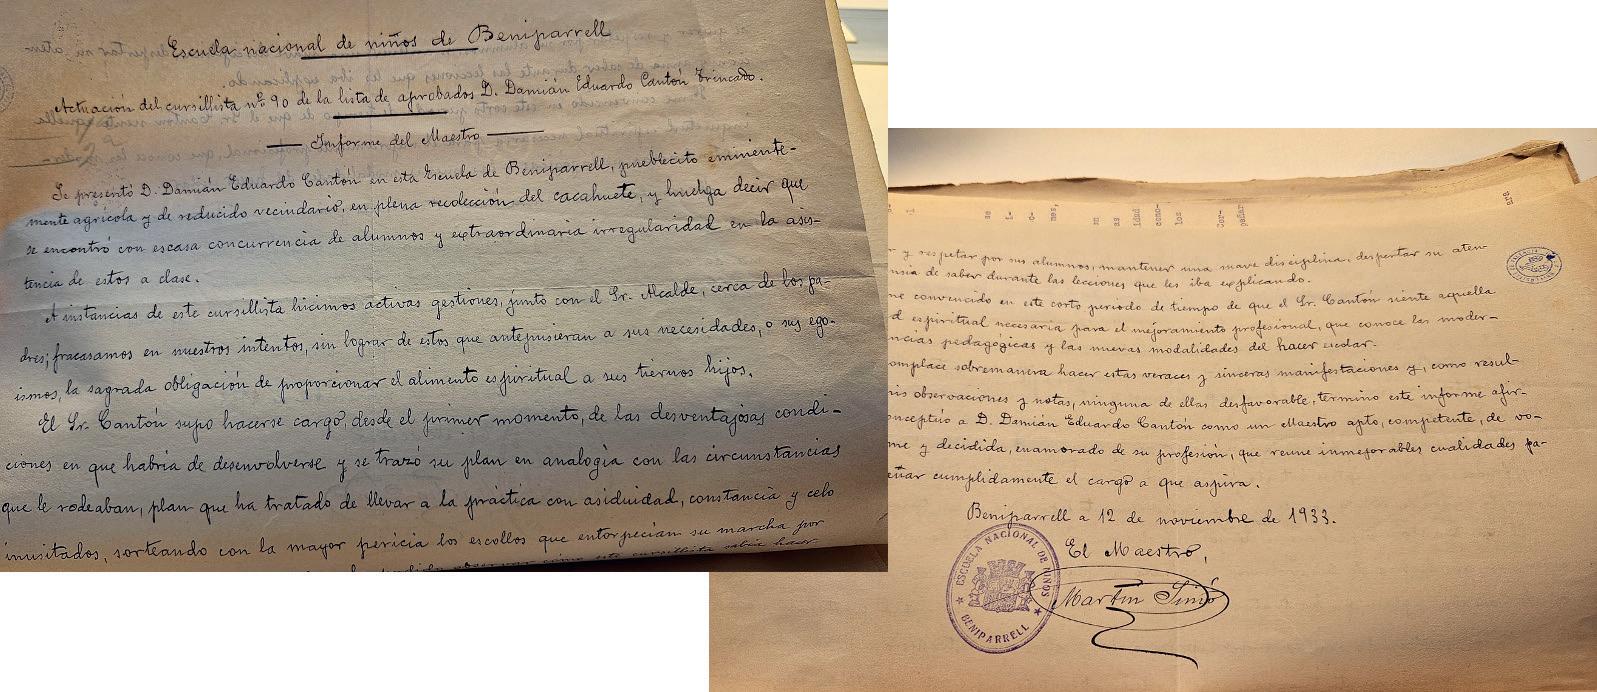 Escuela nacional de niños de Beniparrell
Actuación del cursillista nº 90 de la lista de aprobados D. Damián Eduardo Cantón Trincado.
Informe del Maestro
Se presentó D. Damián Eduardo Cantón en esta Escuela de Beniparrell, pueblecito eminente-
mente agrícola y de reducido vecindario, en plena recolección del cacahuete, y huelga decir que
se encontró con escasa concurrencia de alumnos y extraordinaria irregularidad en la asis-
tencia de estos a clase.
A instancias de este cursillista hicimos activas gestiones, junto con el Sr. Alcalde, cerca de los pa-
dres; fracasamos en nuestros intentos, sin lograr de estos que antepusieran a sus necesidades, o sus ego-
ismos, la sagrada obligación de proporcionar el alimento espiritual a sus tiernos hijos.
El Sr. Cantón supo hacerse cargo, desde el primer momento, de las desventajosas condi-
ciones en que habría de desenvolverse y se trazó su plan en analogía con las circunstancias
que le rodeaban, plan que ha tratado de llevar a la práctica con asiduidad, constancia y celo
inusitados, sorteando con la mayor pericia los escollos que entorpecían su marcha por
observar como este cursillista sabía hacer
r y respetar por sus alumnos, mantener una suave disciplina, despertar su aten-
nsia de saber durante las lecciones que les iba explicando.
me convencido en este corto periodo de tiempo de que el Sr. Cantón siente aquella
d espiritual necesaria para el mejoramiento profesional, que conoce las moder-
ncias pedagógicas y las nuevas modalidades del hacer escolar.
omplace sobremanera hacer estas veraces y sinceras manifestaciones y, como resul-
mis observaciones y notas, ninguna de ellas desfavorable, termino este informe afir-
onceptúo a D. Damián Eduardo Cantón como un Maestro apto, competente, de vo-
me y decidida, enamorado de su profesión, que reune inmejorables cualidades pa-
eñar cumplidamente el cargo a que aspira.
Beniparrell a 12 de noviembre de 1933.
El Maestro,
Martín Simó
ESCUELA NACIONAL DE NIÑOS
BENIPARRELL